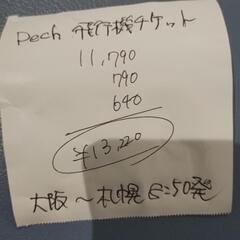 Peach 飛行機チケット
11,790
790
640
¥13,220
大阪〜札幌 :50発